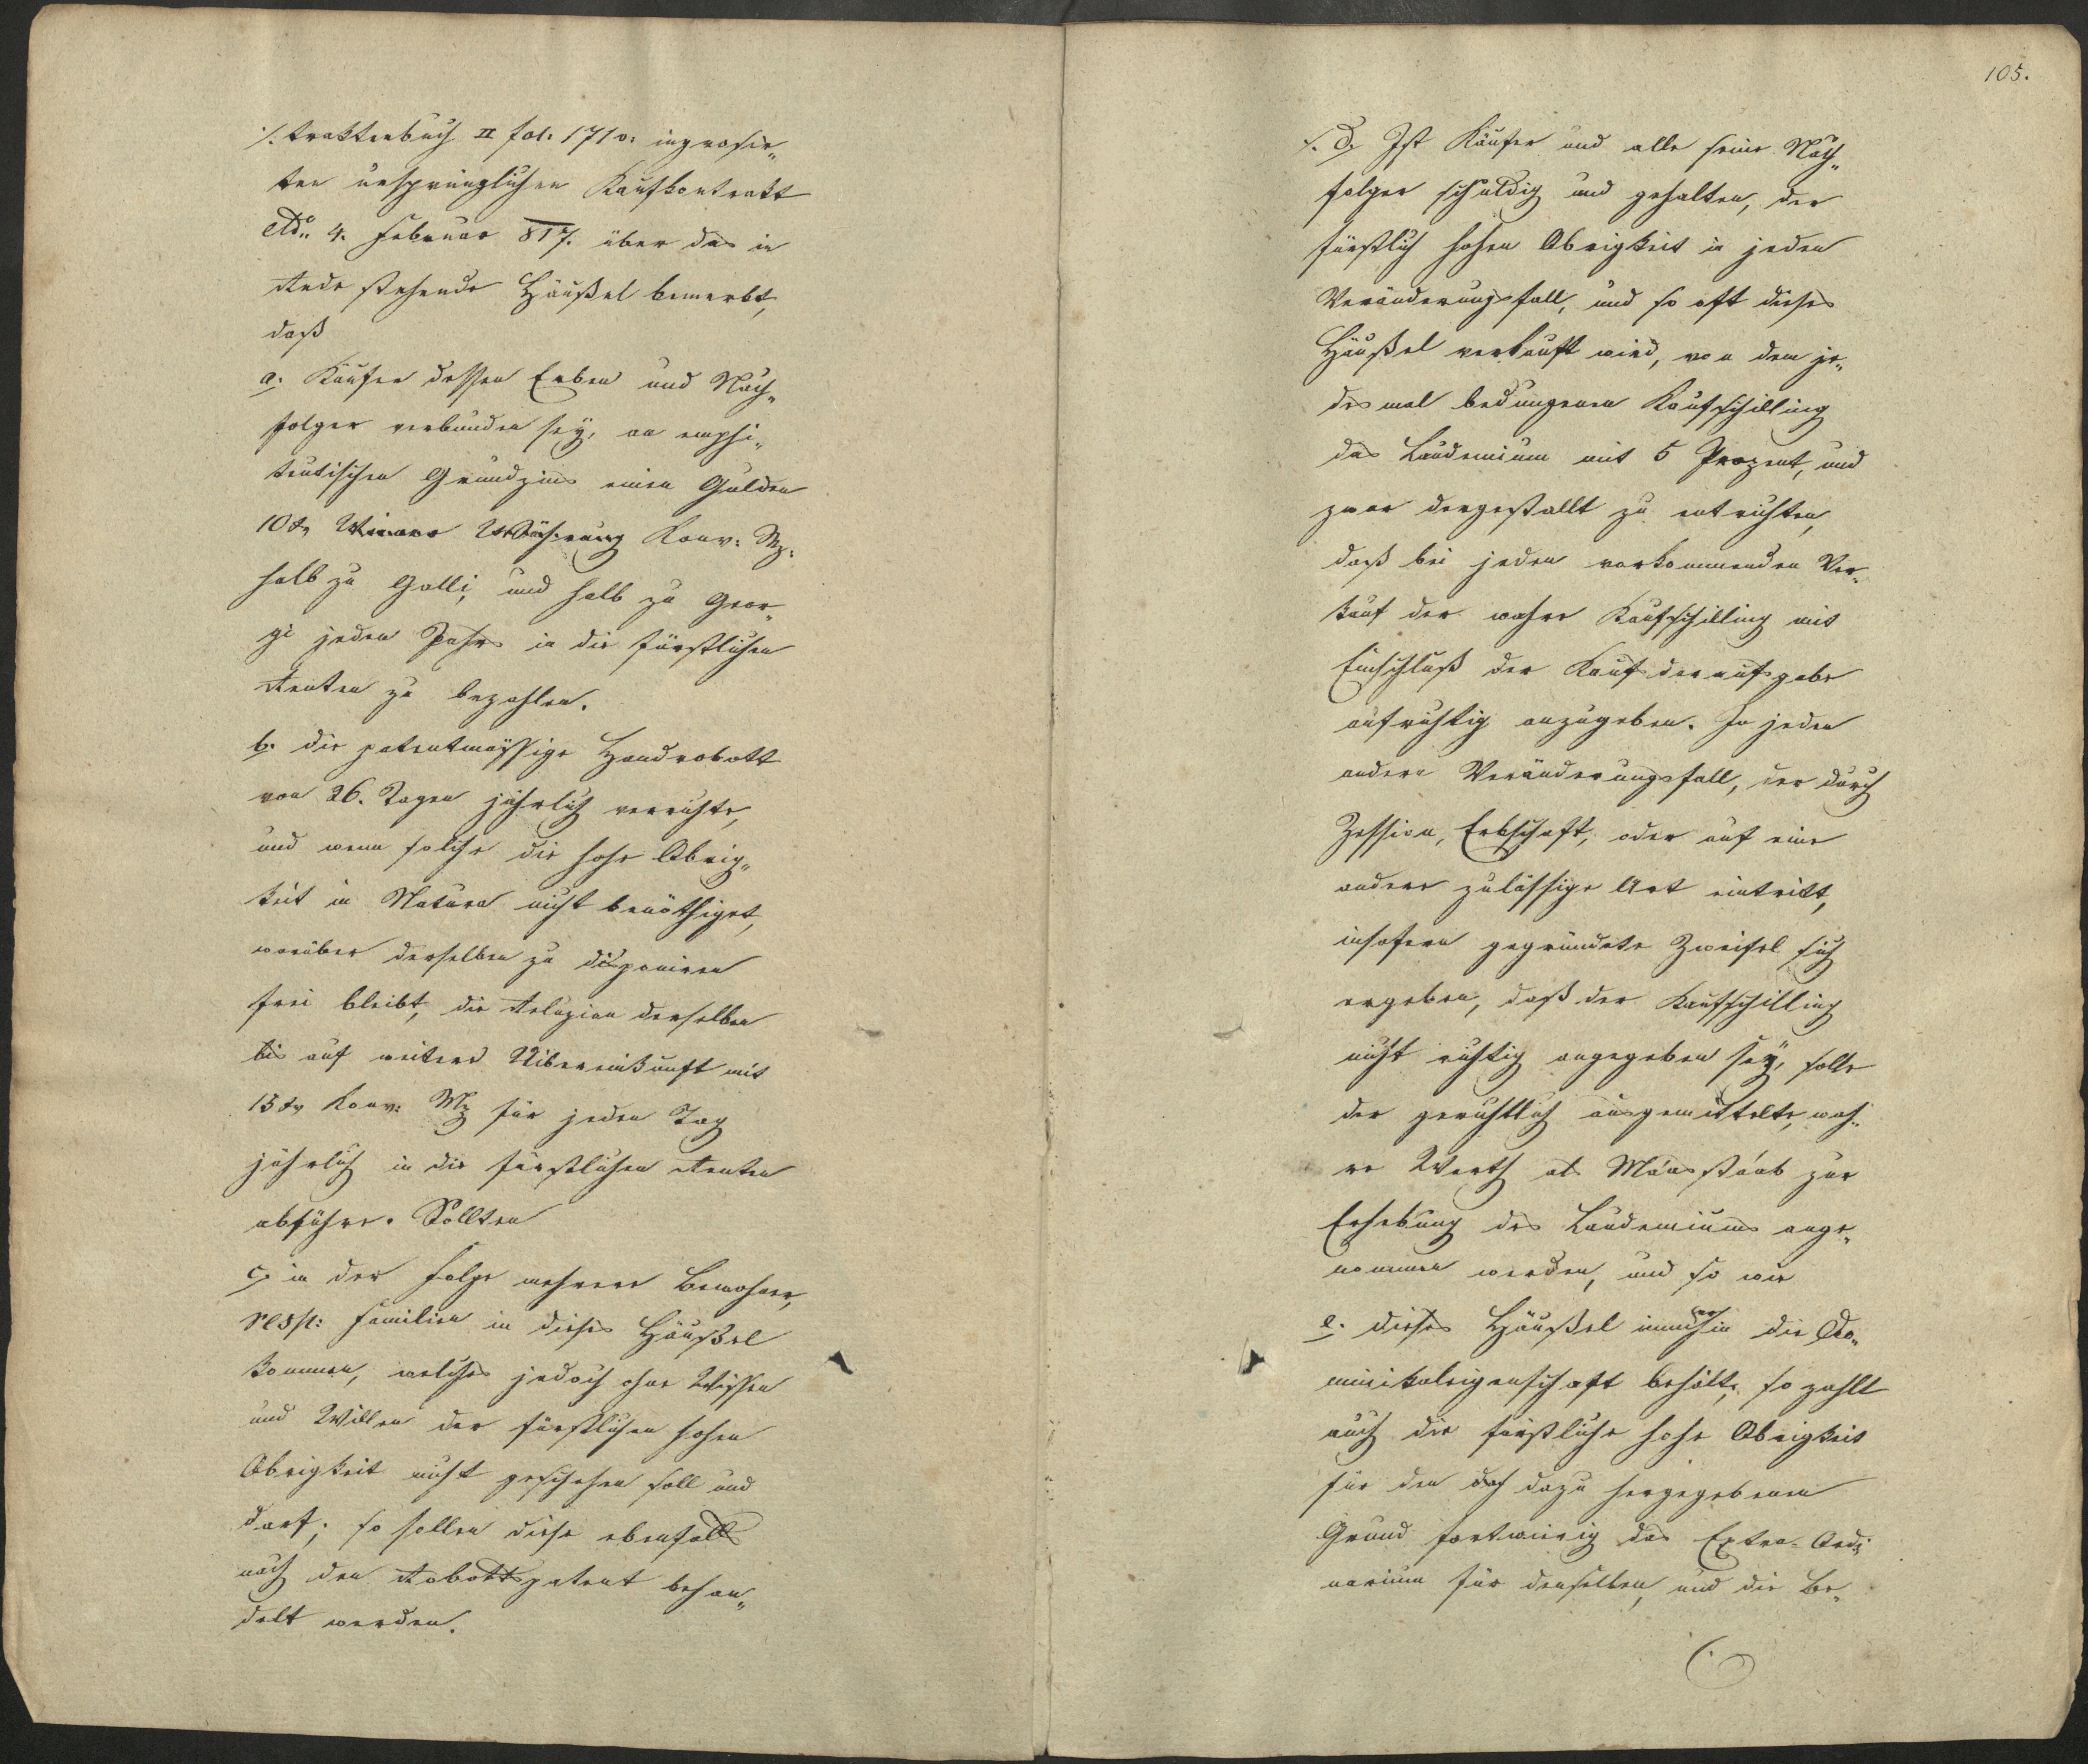 ·/. traktenbuch II fol: 171 v: ingrosir„
ten ursprünglichen Kaufkontrakt
ddo 4. Februar 817. über das in
Rede stehende Häußel bemerkt,
daß
a. Käufer dessen Erben und Nach„
folger verbunden seÿ, an emphi„
teutischen Grundzins einen Gulden
10 xr Wiener Währung Konv: Mz:
halb zu Galli, und halb zu Geor„
gi jeden Jahrs in die fürstlichen
Renten zu bezahlen.
b. die patentmässige Handrobott
von 26. Tagen jährlich verrichte,
und wenn solche die hohe Obrig„
keit in Natura nicht benöthiget,
worüber derselben zu disponiren
frei bleibt, die Reluzion derselben
bis auf weitere Uibereinkunft mit
15 xr Konv: Mz für jeden Tag
jährlich in die fürstlichen Renten
abführe. Sollten
c. in der Folge mehrere Bewohner,
resp: Familien in dieses Häußel
kommen, welches jedoch ohne Wissen
und Willen der fürstlichen hohen
Obrigkeit nicht geschehen soll und
darf; so sollen diese ebenfalls
nach den Robottspatent behan„
delt werden.
105.
·/. d. Ist Käufer und alle seine Nach„
folger schuldig und gehalten, der
fürstlich hohen Obrigkeit in jeden
Veränderungsfall, und so oft dieses
Häußel verkauft wird, von dem je„
desmal bedungenen Kaufschilling
das Laudemium mit 5 Prozent, und
zwar dergestallt zu entrichten,
daß bei jeden vorkommenden Ver„
kauf der wahre Kaufschilling mit
Einschluß der Kaufsdraufgabe
aufrichtig anzugeben. In jeden
andern Veränderungsfall, der durch
Zession, Erbschaft, oder auf eine
andere zulässige Art eintritt,
insofern gegründete Zweifel sich
ergeben, daß der Kaufschilling
nicht richtig angegeben seÿ, solle
der gerichtlich ausgemittelte, wah„
re Werth als Maasstaab zur
Erhebung des Laudemiums ange„
nommen werden, und so wie
e. dieses Häußel immerhin die Do„
minikaleigenschaft behält, so zahlt
auch die fürstliche hohe Obrigkeit
für den dazu hergegebenen
Grund fortwierig das Extra-Ordi
narium für denselben, und die Be„